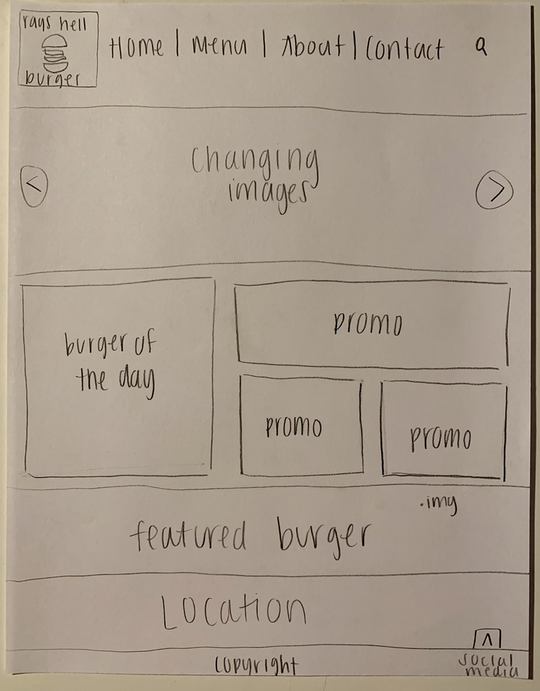 rays hell
burger
Home | Menu | About | Contact
changing
images
<
>
burger of
the day
promo
promo
promo
.img
featured burger
Location
copyright
social
media